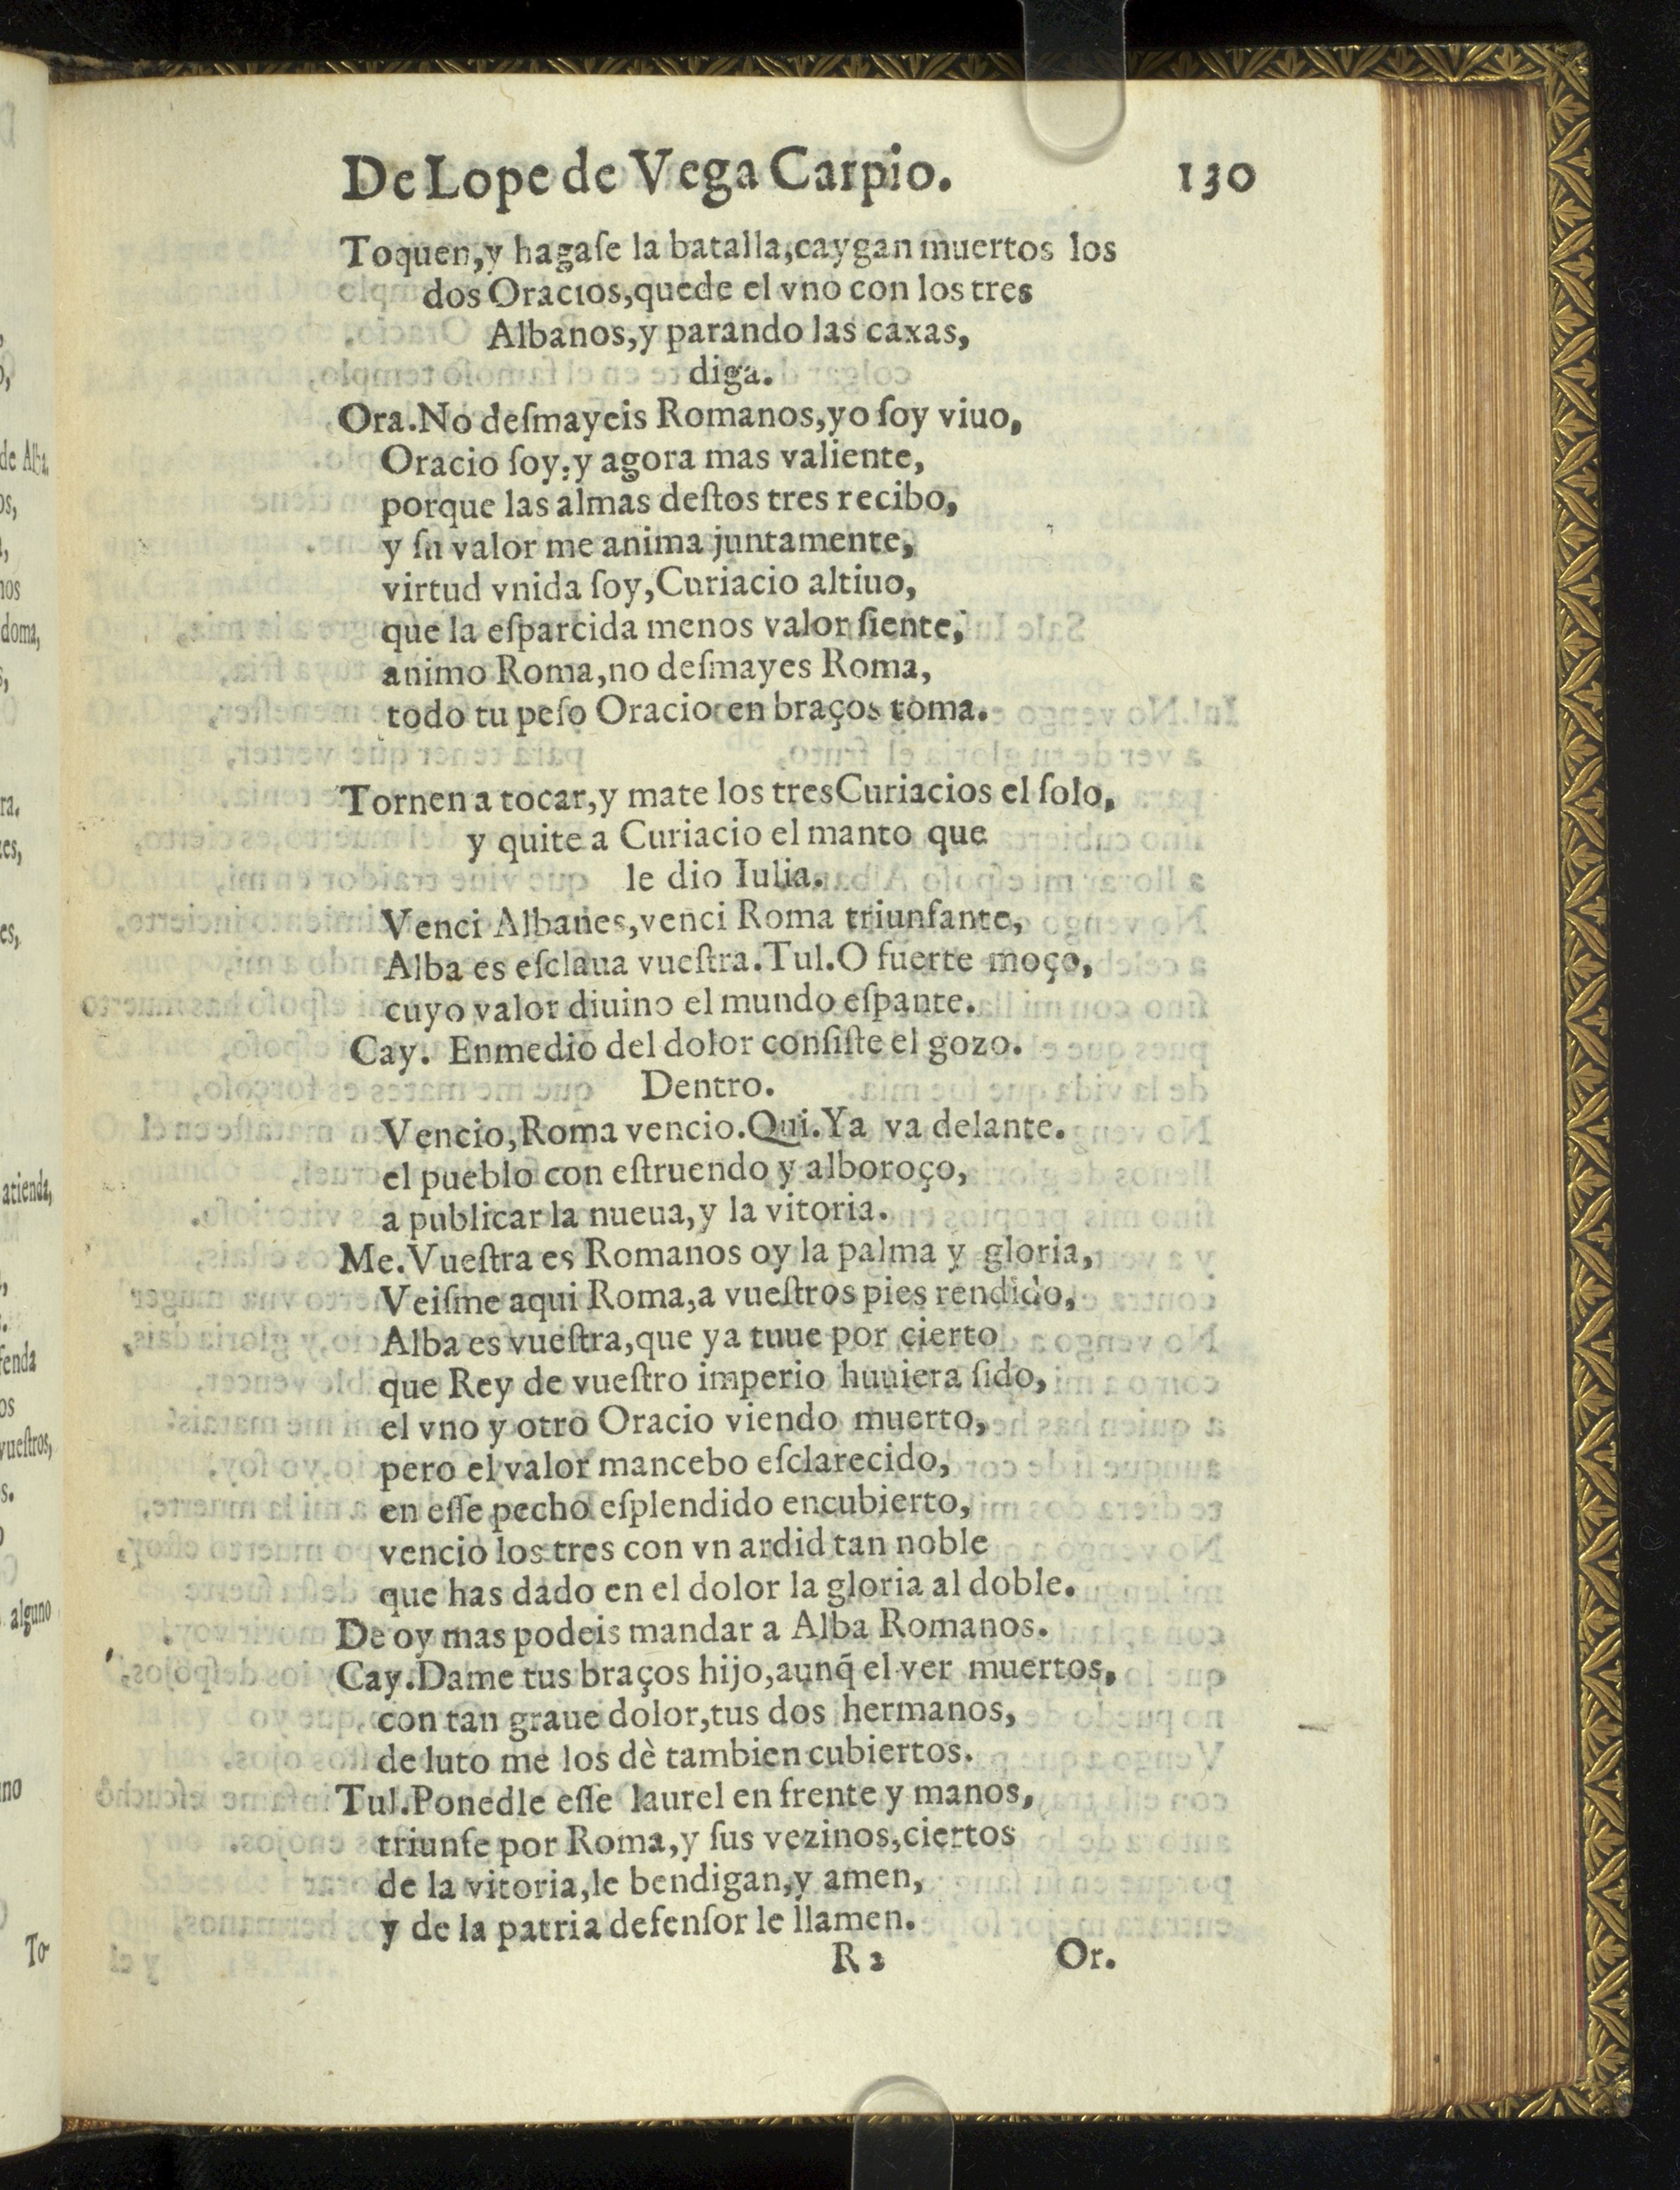 De Lope de Vega Carpio. 130
Toquen,y hagaſe la batalla,caygan muertos los
dos Oracios,quede el vno con los tres
Albanos,y parando las caxas,
diga.
Ora.No deſmayeis Romanos,yo ſoy viuo,
Oracio ſoy,y agora mas valiente,
porque las almas deſtos tres recibo,
y ſu valor me anima juntamente,
virtud vnida ſoy,Curiacio altiuo,
que la eſparcida menos valor ſiente,
animo Roma,no deſmayes Roma,
todo tu peſo Oracio en braços toma.
Tornen a tocar,y mate los tres Curiacios el ſolo,
y quite a Curiacio el manto que
le dio Iulia.
Venci Albanes,venci Roma triunfante,
Alba es eſclaua vueſtra.Tul.O fuerte moço,
cuyo valor diuino el mundo eſpante.
Cay. Enmedio del dolor conſiſte el gozo.
Dentro.
Vencio,Roma vencio.Qui.Ya va delante.
el pueblo con eſtruendo y alboroço,
a publicar la nueua,y la vitoria.
Me.Vueſtra es Romanos oy la palma y gloria,
Veiſme aqui Roma,a vueſtros pies rendido,
Alba es vueſtra,que ya tuue por cierto
que Rey de vueſtro imperio huuiera ſido,
el vno y otro Oracio viendo muerto,
pero el valor mancebo eſclarecido,
en eſſe pecho eſplendido encubierto,
venciò los tres con vn ardid tan noble
que has dado en el dolor la gloria al doble.
De oy mas podeis mandar a Alba Romanos.
Cay.Dame tus braços hijo,aunq̃ el ver muertos,
con tan graue dolor,tus dos hermanos,
de luto me los dè tambien cubiertos.
Tul.Ponedle eſſe laurel en frente y manos,
triunfe por Roma,y ſus vezinos,ciertos
de la vitoria,le bendigan,y amen,
y de la patria defenſor le llamen.
R 2 Or.